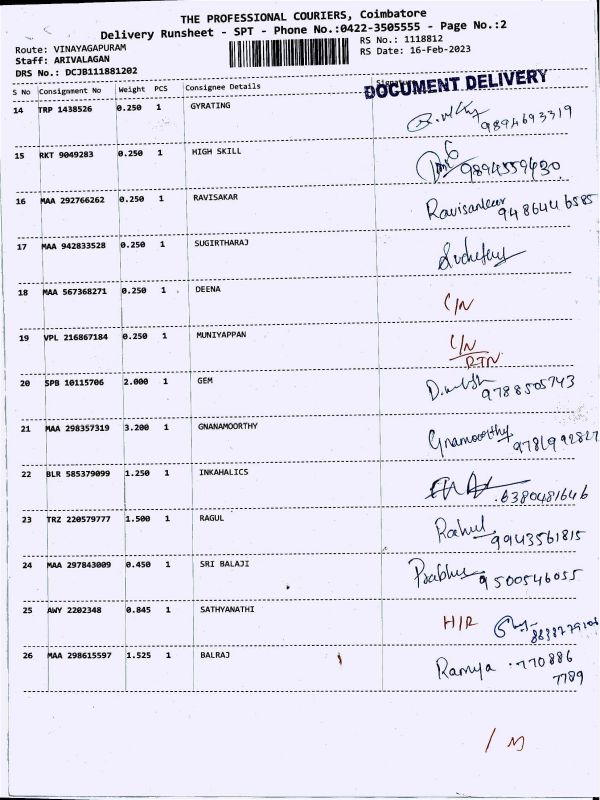 THE PROFESSIONAL COURIERS, Coimbatore
Delivery Runsheet - SPT - Phone No.:0422-3505555 - Page No.:2
Route: VINAYAGAPURAM RS No.: 1118812
Staff: ARIVALAGAN RS Date: 16-Feb-2023
DRS No.: DCJB111881202
DOCUMENT DELIVERY
S No Consignment No Weight PCS Consignee Details Signature
14 TRP 1438526 0.250 1 GYRATING
9894693319
15 RKT 9049283 0.250 1 HIGH SKILL
9894559430
16 MAA 292766262 0.250 1 RAVISAKAR Ravisankar
9486446585
17 MAA 942833528 0.250 1 SUGIRTHARAJ
18 MAA 567368271 0.250 1 DEENA C/N
19 VPL 216867184 0.250 1 MUNIYAPPAN C/N
RTN
20 SPB 10115706 2.000 1 GEM
9788505743
21 MAA 298357319 3.200 1 GNANAMOORTHY Gnamoorthy
9781992827
22 BLR 585379099 1.250 1 INKAHALICS
6380481646
23 TRZ 220579777 1.500 1 RAGUL Rahul
9943561815
24 MAA 297843009 0.450 1 SRI BALAJI Prabhu
9500546055
25 AWY 2202348 0.845 1 SATHYANATHI H/R
26 MAA 298615597 1.525 1 BALRAJ Ramya 770886
7789